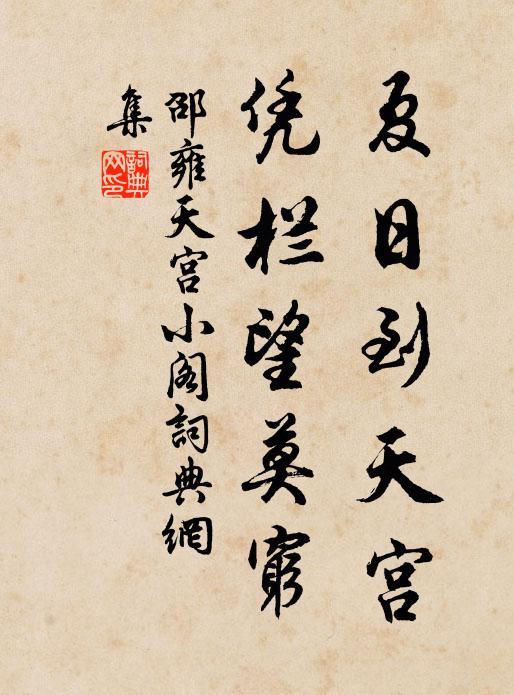 夏日到天宫
凭栏望莫窮
邵雍天宫小阁詞典網
集
詞典網印